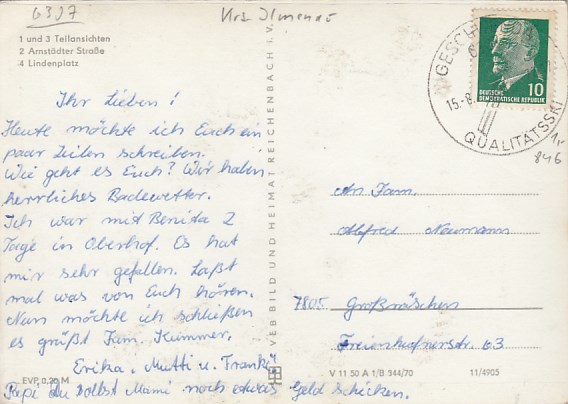 6327
Krs. Ilmenau
1 und 3 Teilansichten
2 Arnstädter Straße
4 Lindenplatz
DEUTSCHE
DEMOKRATISCHE REPUBLIK
10
15.-8.
QUALITÄTSSKI
1,-
846
Ihr Lieben!
Heute möchte ich Euch ein
paar Zeilen schreiben.
Wie geht es Euch? Wir haben
herrliches Badewetter.
Ich war mit Benita 2
Tage in Oberhof. Es hat
mir sehr gefallen. Laßt
mal was von Euch hören.
Nun möchte ich schließen
es grüßt Fam. Kummer.
Erika, Mutti u. Frank
Pepi Du sollst Mami noch etwas Geld schicken.
EVP 0,20 M
VEB BILD UND HEIMAT REICHENBACH I. V.
An Fam.
Alfred Neumann
7805 Großräschen
Freienhufnerstr 63
V 11 50 A 1/B 344/70
11/4905